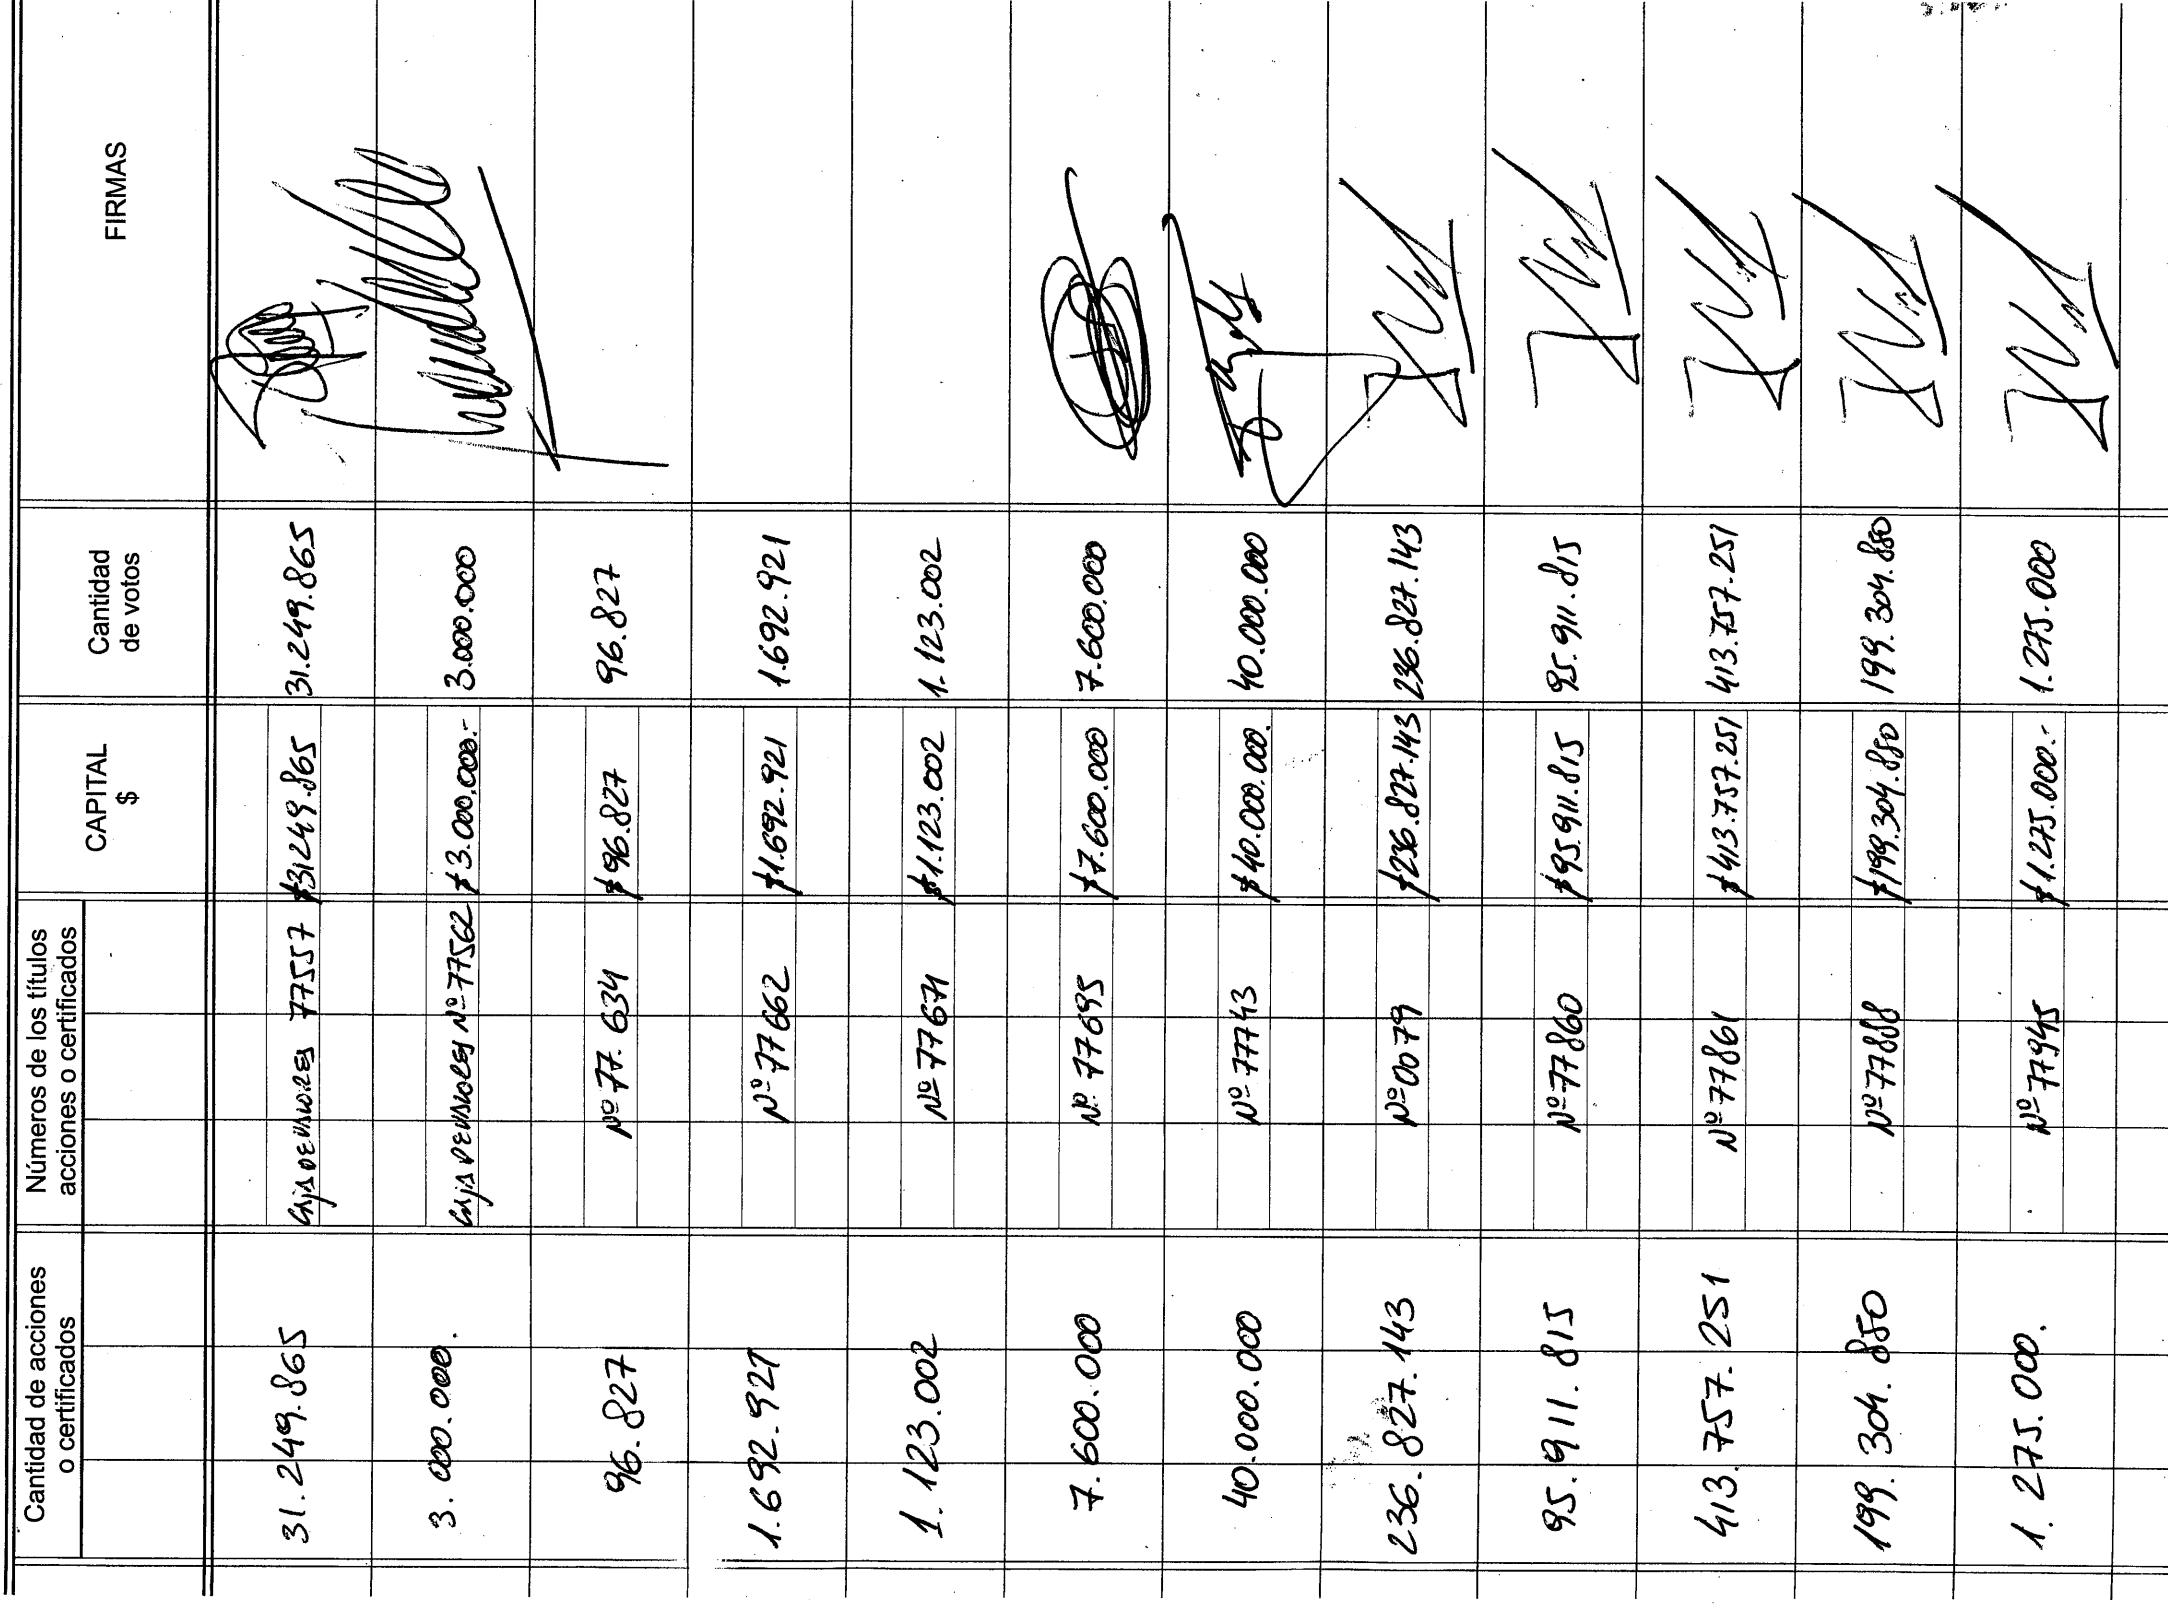 Cantidad de acciones o certificados | Números de los títulos acciones o certificados | CAPITAL $ | Cantidad de votos | FIRMAS
31.249.865 | CAJA DE VALORES 77557 | $31249.865 | 31.249.865
3.000.000. | CAJA DE VALORES Nº 77562 | $3.000.000.- | 3.000.000
96.827 | Nº 77.634 | $96.827 | 96.827
1.692.921 | Nº 77662 | $1.692.921 | 1.692.921
1.123.002 | Nº 77671 | $1.123.002 | 1.123.002
7.600.000 | Nº 77695 | $7.600.000 | 7.600.000
40.000.000 | Nº 77743 | $40.000.000. | 40.000.000
236.827.143 | Nº 0079 | $236.827.143 | 236.827.143
95.911.815 | Nº 77860 | $95.911.815 | 95.911.815
413.757.251 | Nº 77861 | $413.757.251 | 413.757.251
199.304.850 | Nº 77888 | $199.304.850 | 199.304.850
1.275.000. | Nº 77945 | $1.275.000.- | 1.275.000